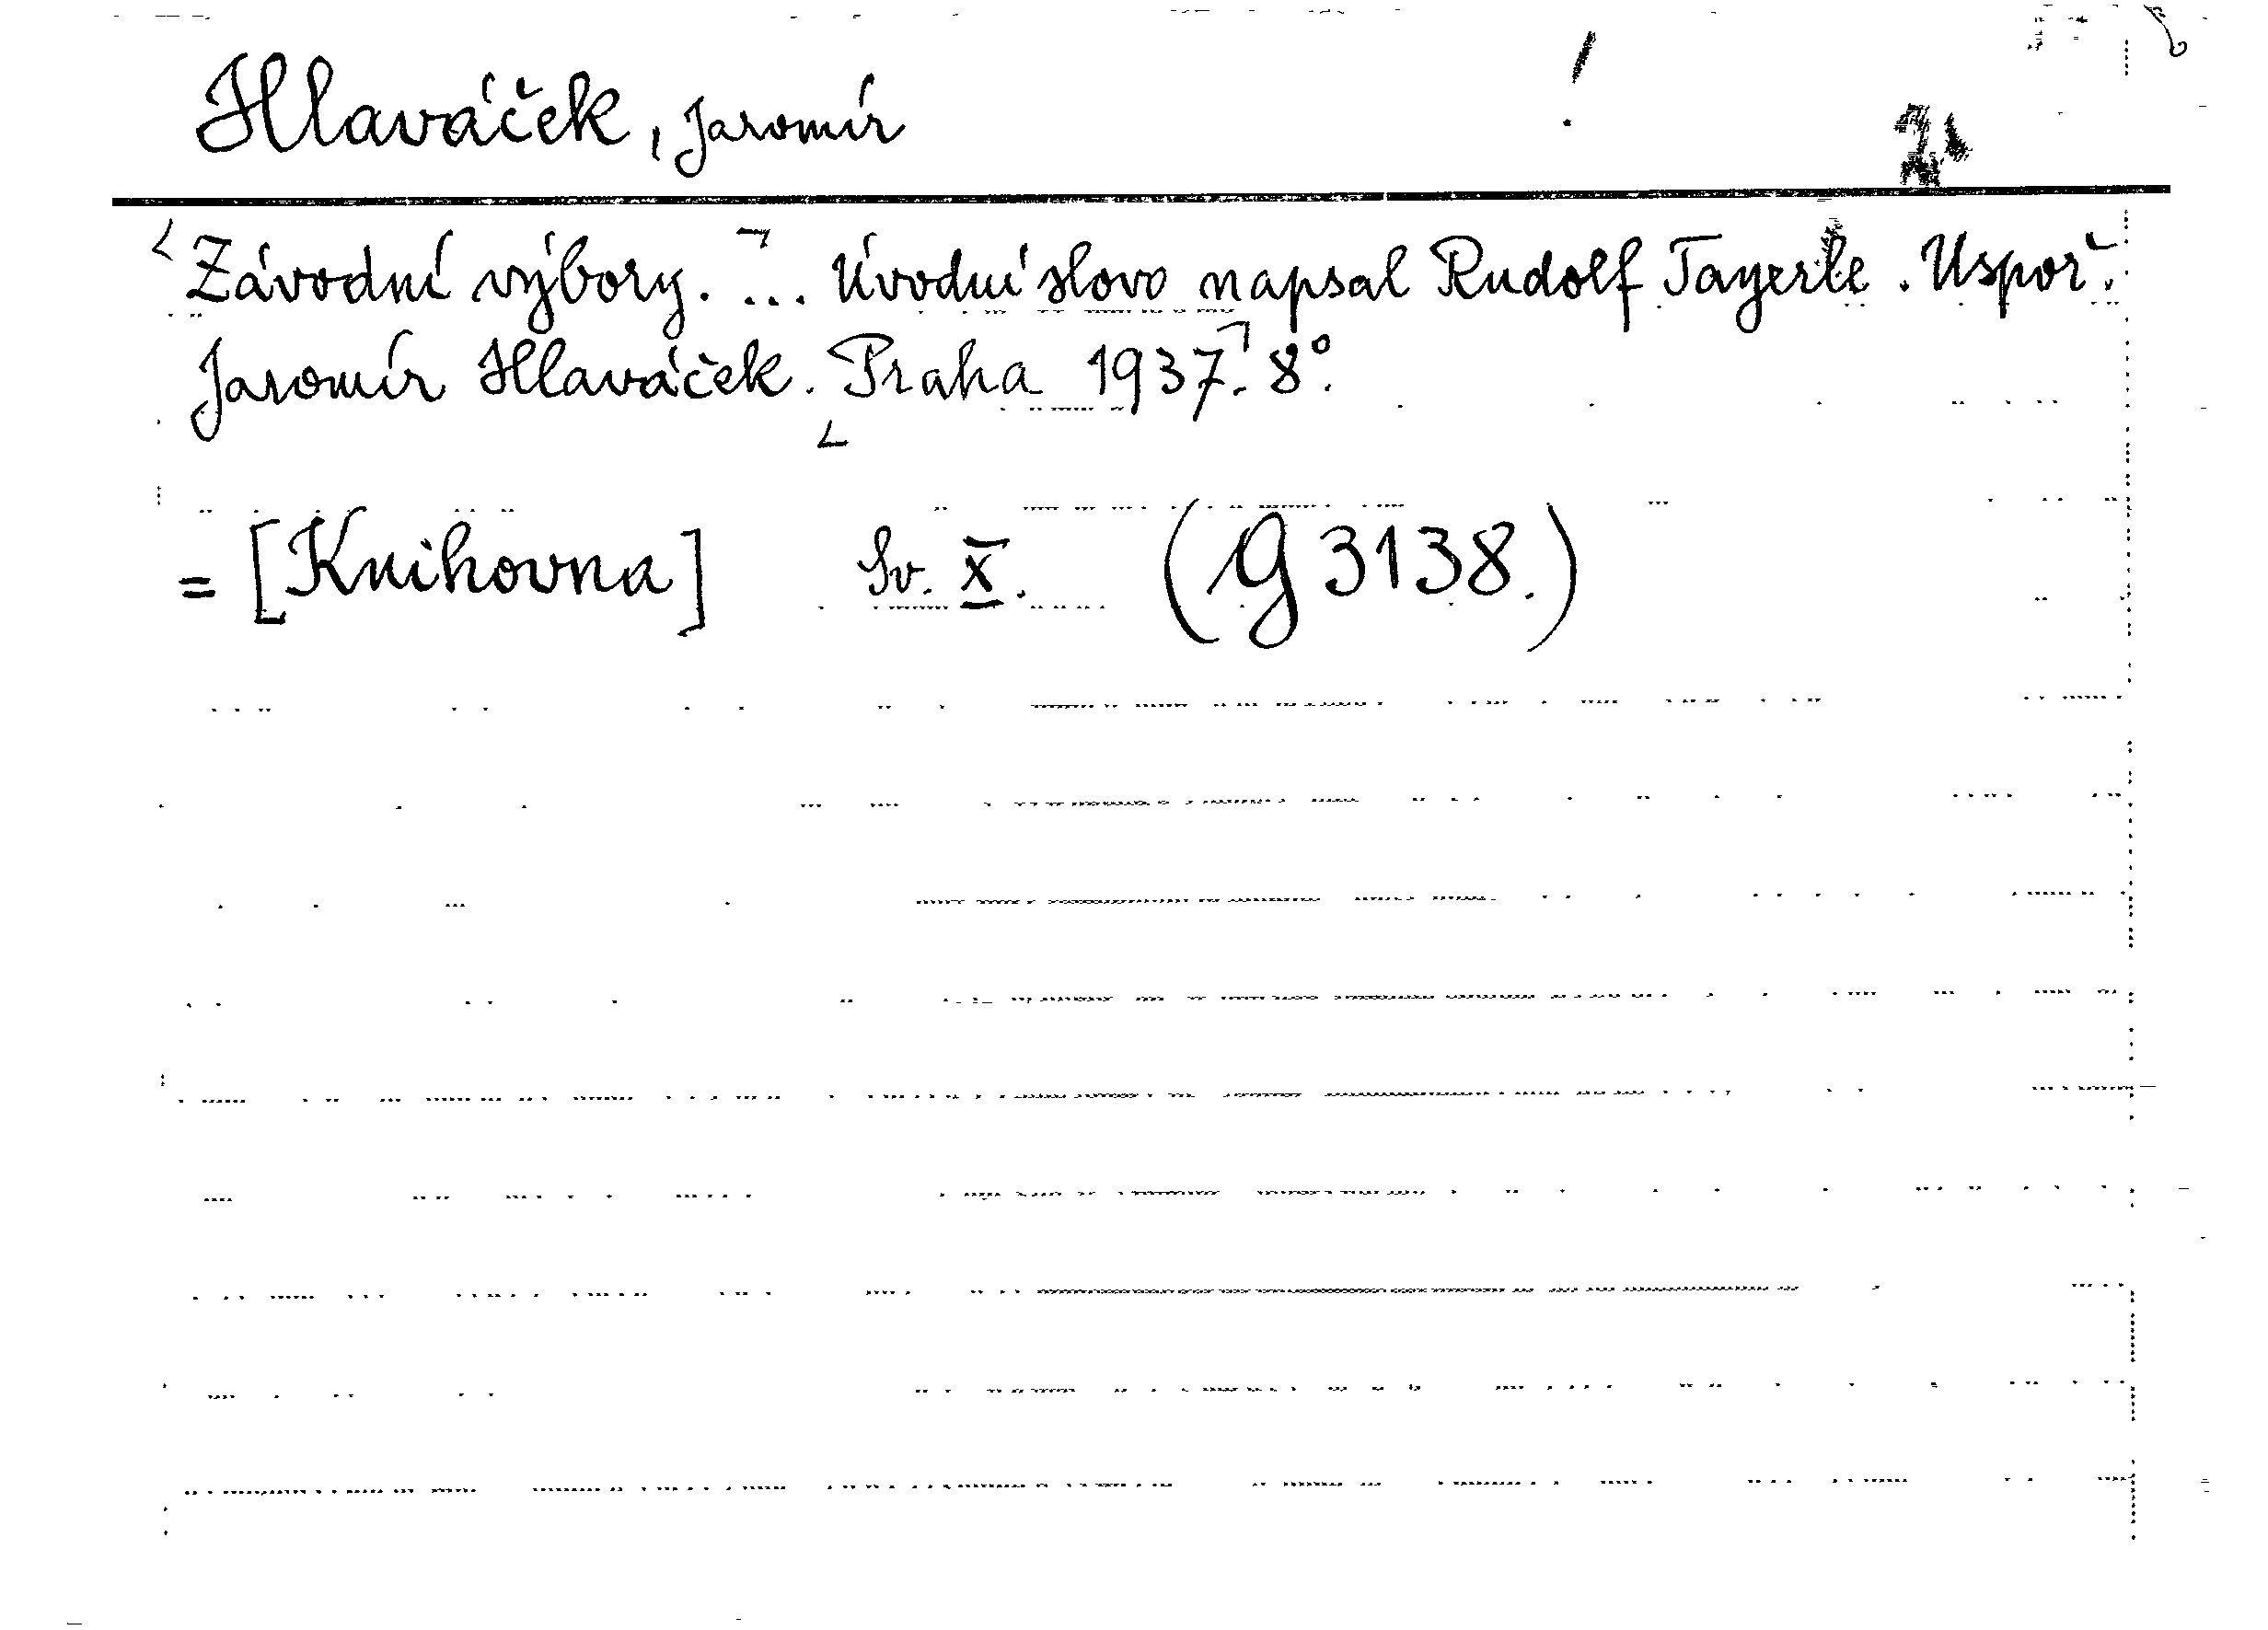 Hlaváček, Jaromír !
Závodní výbory. ... Úvodní slovo napsal Rudolf Tayerle. Uspoř.
Jaromír Hlaváček. Praha 1937. 8°.
= [Knihovna] Sv. X. (g 3138.)